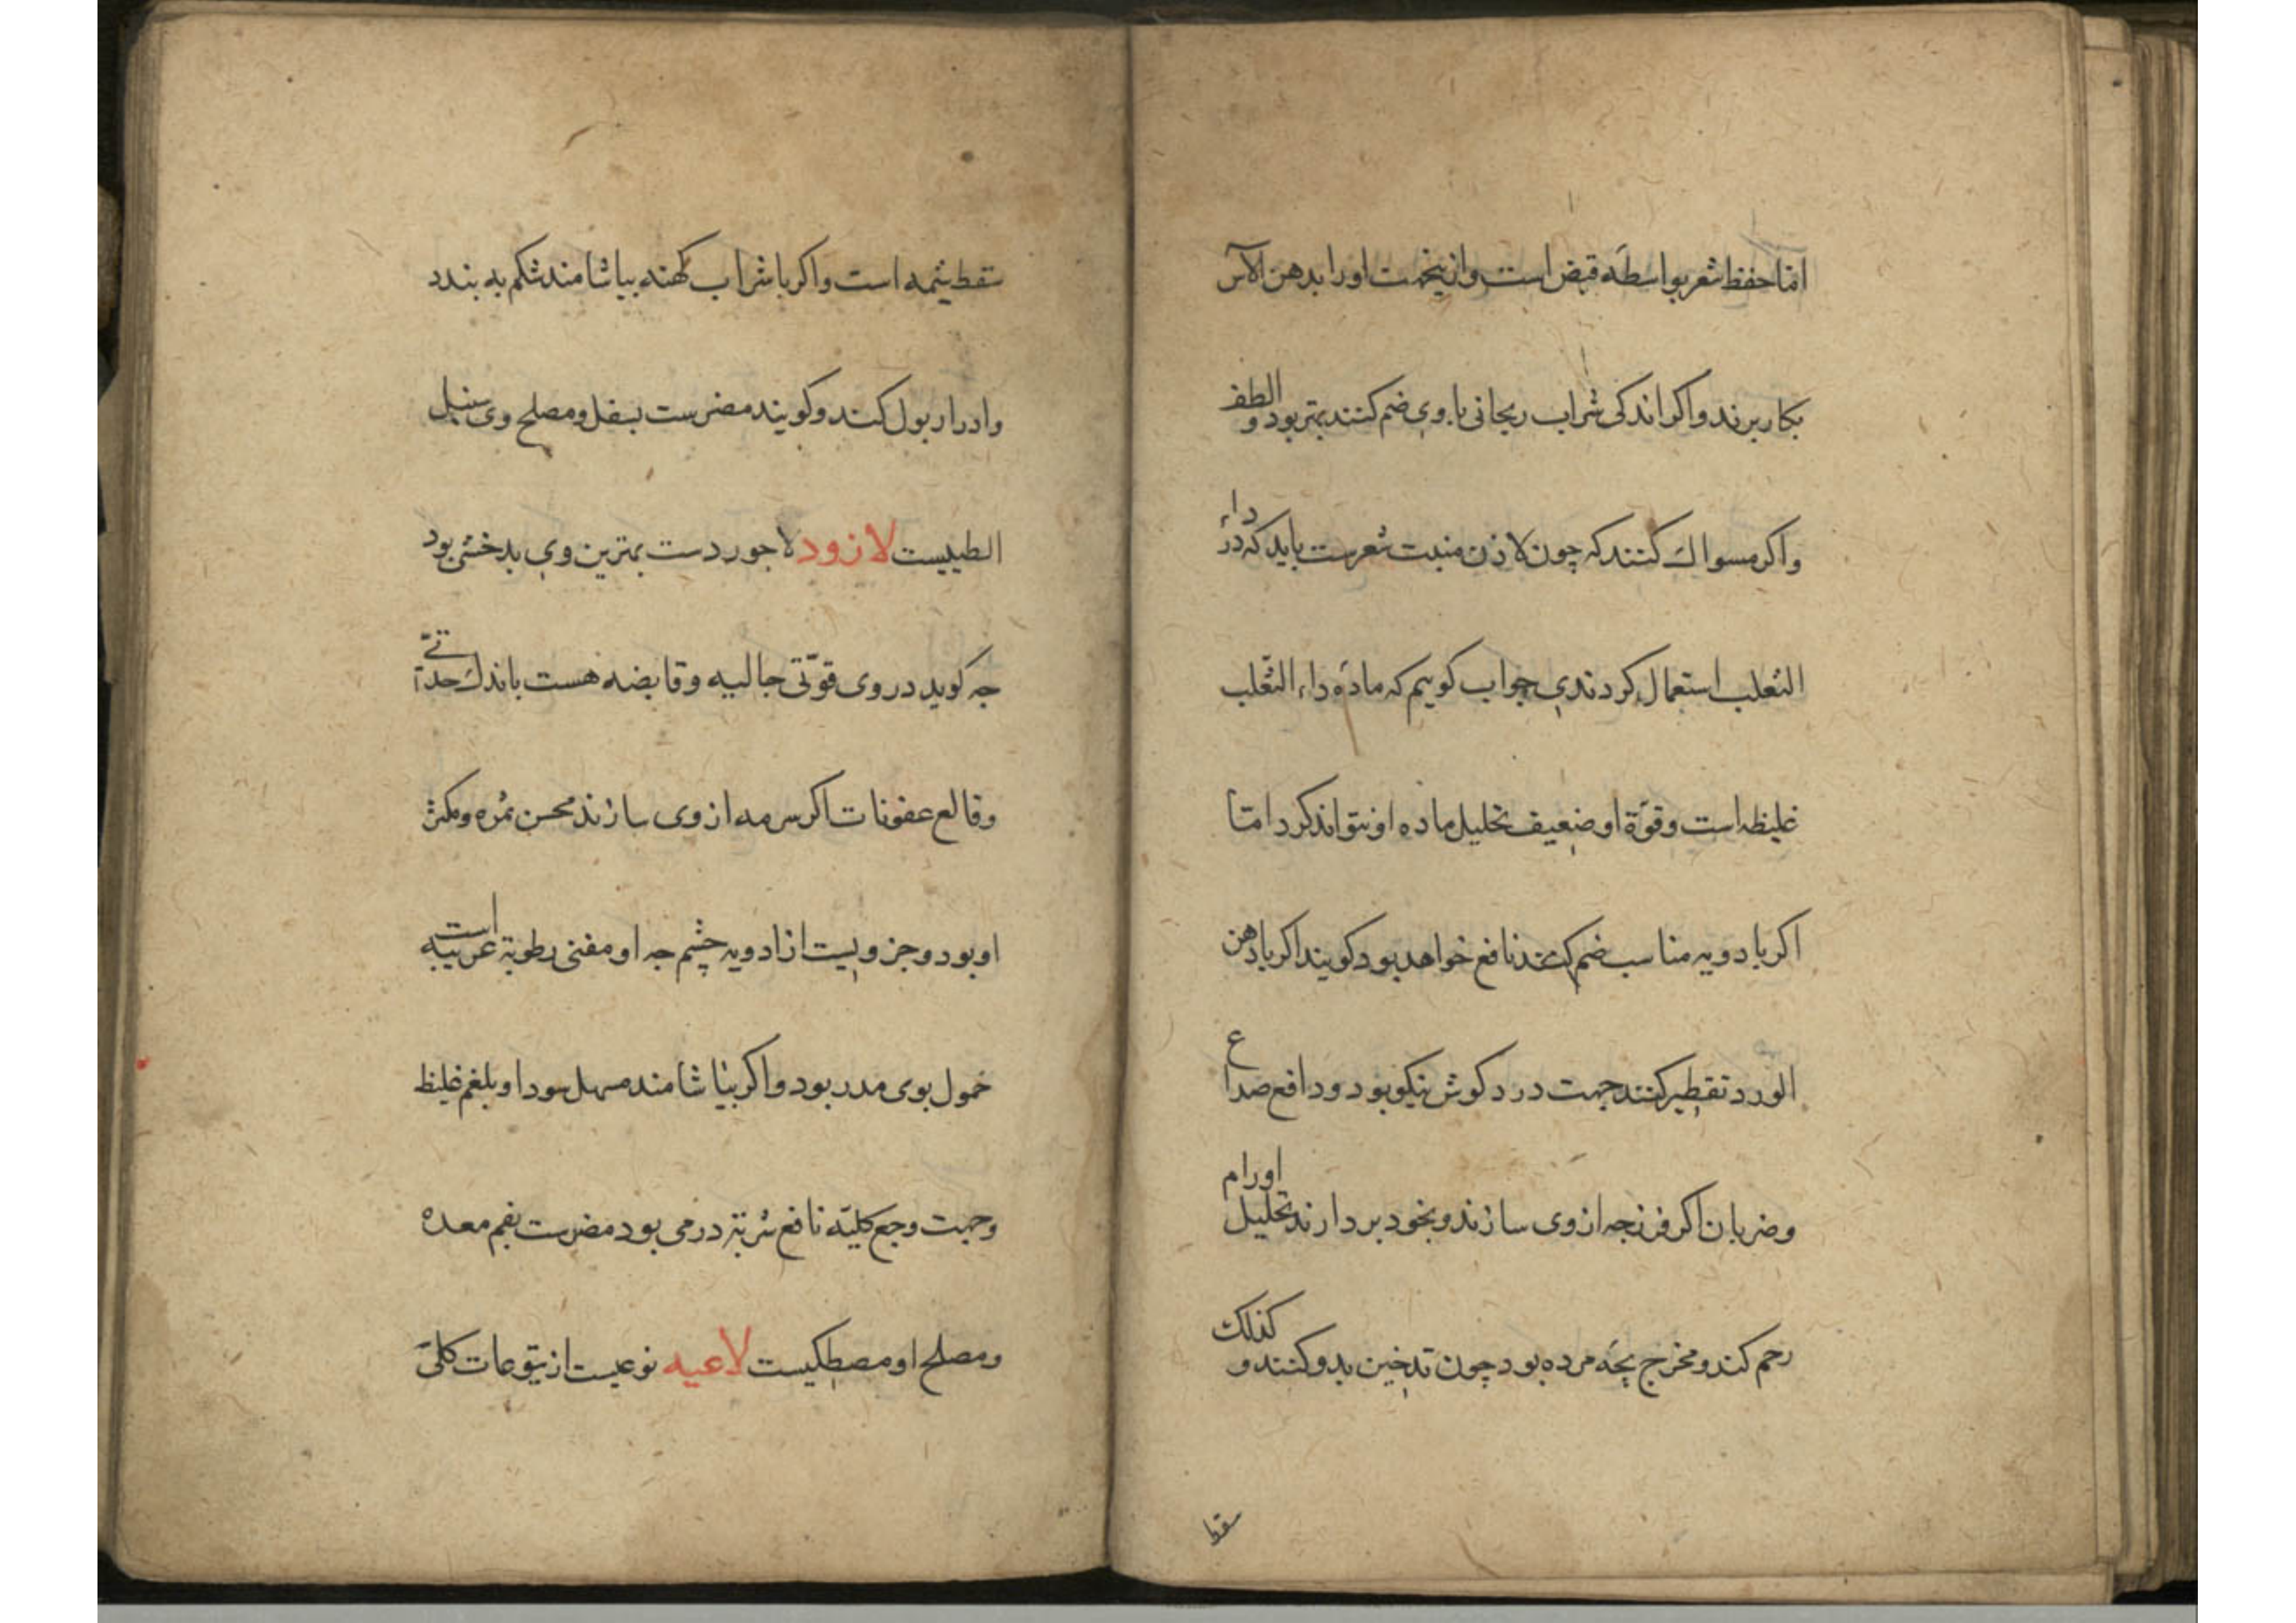 امّا حفظ شعر بواسطهٔ قبض است و از ینجهت او را بدهن الآس
بکار برند و اکر اندکی شراب ریحانی با وی ضم کنند بهتر بود و الطف
و اکر مسواك کنند که چون لاذن منبت شعرست باید که در داء
الثعلب استعمال کردندی جواب کوییم که مادهٔ داء الثعلب
غلیظه است و قوّة او ضعیف تحلیل ماده او نتواند کرد امّا
اکر با دویه مناسب ضم کنند نافع خواهد بود کویند اکر با دهن
الورد تقطیر کنند جهت درد کوش نیکو بود و دافع صداع
و ضربان اکر فرزجه از وی سازند و بخود بردارند تحلیل اورام
رحم کند و مخرج بچهٔ مرده بود چون تدخین بدو کنند و کذلك
سقط
سقط یثمه است و اکر با شراب کهنه بیاشامند شکم به بندد
و ادرار بول کند و کویند مضرست بسفل و مصلح وی سنبل
الطیبست لازود لاجوردست بهترین وی بدخشی بود
جه کوید در وی قوّتی جالیه و قابضه هست باندك حدّتی
و قالع عفونات اکر سرمه از وی سازند محسن ثمره و مکثر
او بود و جزویست از ادویه چشم جه او مفنی رطوبة غریبه است
خمول بوی مدر بود و اکر بیاشامند مسهل سودا و بلغم غلیظ
و جهت وجع کلیه نافع شربتة درمی بود مضرست بفم معده
و مصلح او مصطکیست لاعیه نوعیست از یتوعات کلتی